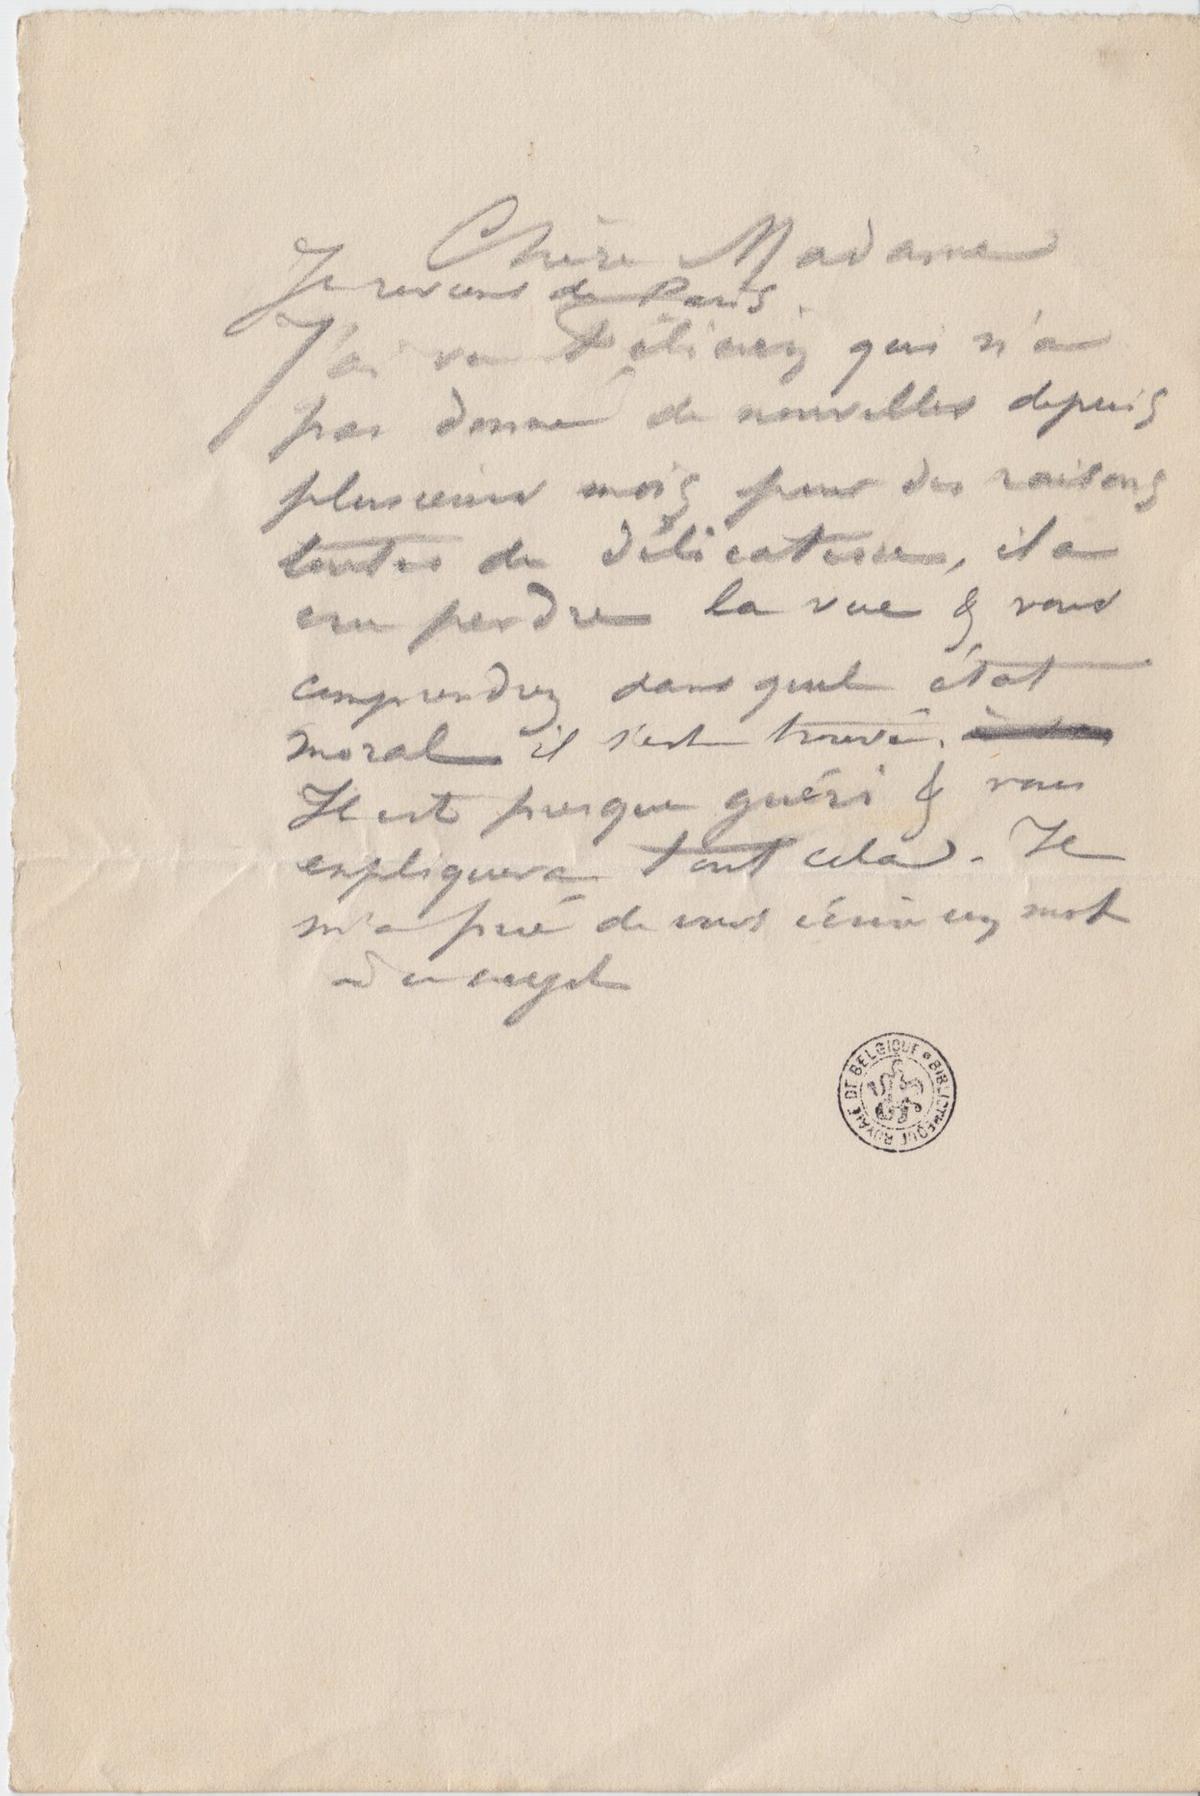 Chère Madame
Je reviens de Paris
J'ai vu Félicien qui n'a
pas donné de nouvelles depuis
plusieurs mois pour des raisons
toutes de délicatesse, il a
cru perdre la vue & vous
comprendrez dans quel état
moral il s'est trouvé.
Il est presque guéri & vous
expliquera tout cela. Il
m'a prié de vous écrire un mot
à ce sujet
BIBLIOTHEQUE ROYALE DE BELGIQUE